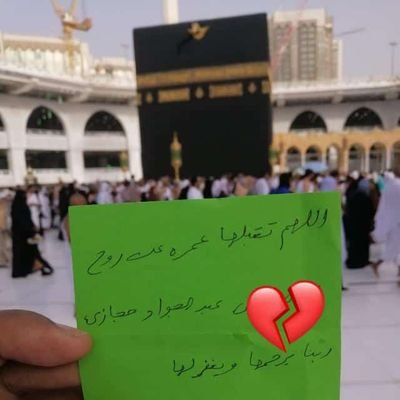 اللهم تقبلها عمره عن روح
عبد الجواد حجازى
ربنا يرحمها ويغفرلها